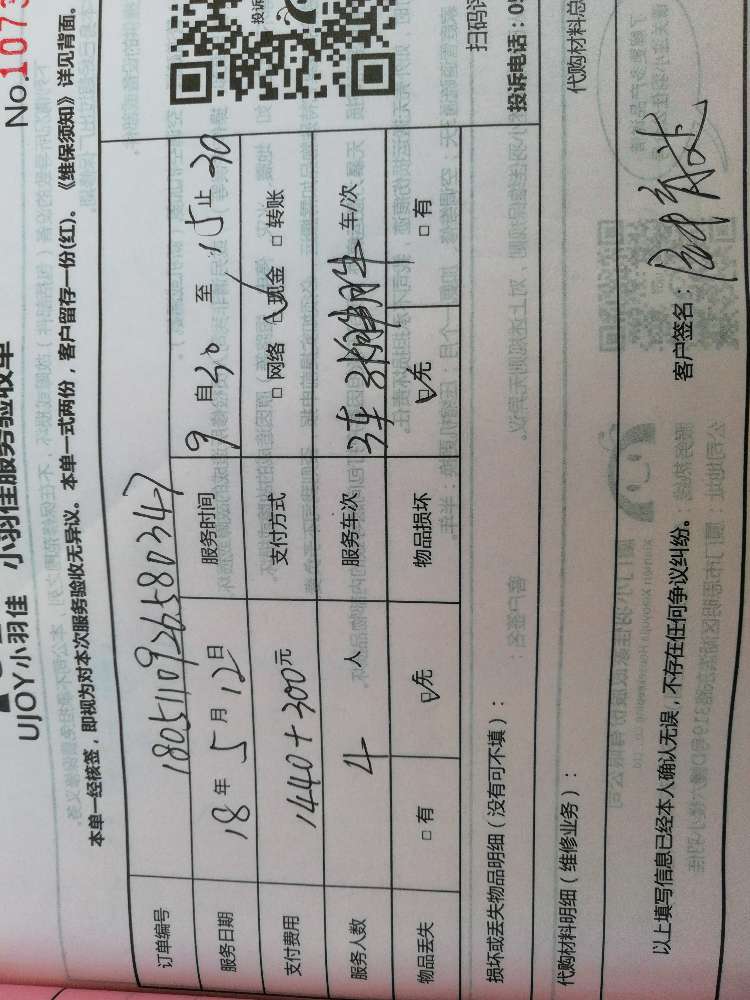 No.1073
UJOY小羽佳 小羽佳服务验收单
本单一经核签，即视为对本次服务验收无异议。本单一式两份，客户留存一份(红)。《维保须知》详见背面。
订单编号 1805110926580347
服务日期 18年5月12日 服务时间 9自30至15止30
支付费用 1440+300元 支付方式 □网络 ☑现金 □转账
服务人数 4人 服务车次 3车 车/次
物品丢失 □有 ☑无 物品损坏 ☑无 □有
损坏或丢失物品明细（没有可不填）：
代购材料明细（维修业务）：
代购材料总
以上填写信息已经本人确认无误，不存在任何争议纠纷。
客户签名：
投诉
扫码评
投诉电话：05